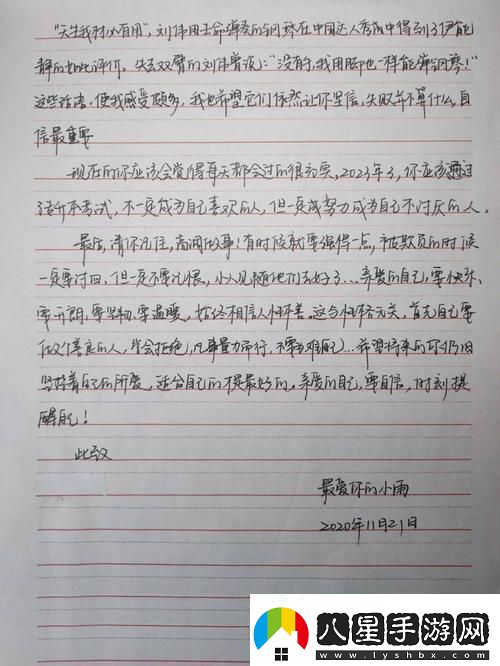 “天生我材必有用”，刘伟用生命弹奏的钢琴在中国达人秀中得到了伊能
静的如此评价，失去双臂的刘伟曾说：“没有手，我用脚也一样能弹钢琴！”
这些话语，使我感受颇多，我也希望它们依然让你坚信，失败并不算什么，自
信最重要
现在的你应该会觉得每天都会过的很充实，2023年了，你应该通过
专升本考试，不一定成为自己喜欢的人，但一定成努力成为自己不讨厌的人。
最后，请你记住，高调做事！有时候就要强得一点，被欺负的时候
一定要讨回，但一定不要记恨，小人见随他们去好了…亲爱的自己，要快乐、
要开朗、要坚韧、要温暖，始终相信人性本善。这与性格无关，首先自己要
做个善良的人，学会拒绝，凡事量力而行，不要为难自己…希望将来的你仍旧
坚持着自己的所爱，适合自己的便是最好的。亲爱的自己，要自信，时刻提
醒自己！
此致
最爱你的小雨
2020年11月21日
八星手游网
www.lyshbx.com